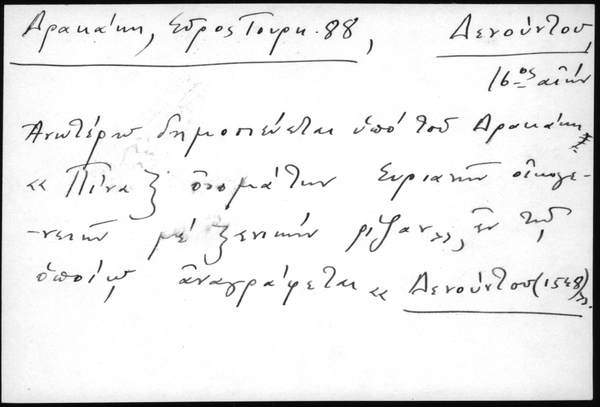 Δρακάκη, Σύρος Τουρκ. 88, Δενούντου,
16ος αἰών
Ἀνωτέρω δημοσιεύεται ὑπό τοῦ Δρακάκη
« Πίναξ ὀνομάτων Συριανῶν οἰκογε-
-νειῶν μέ ξενικήν ρίζαν», ἐν τῷ
ὁποίῳ ἀναγράφεται « Δενούντου (1548)».